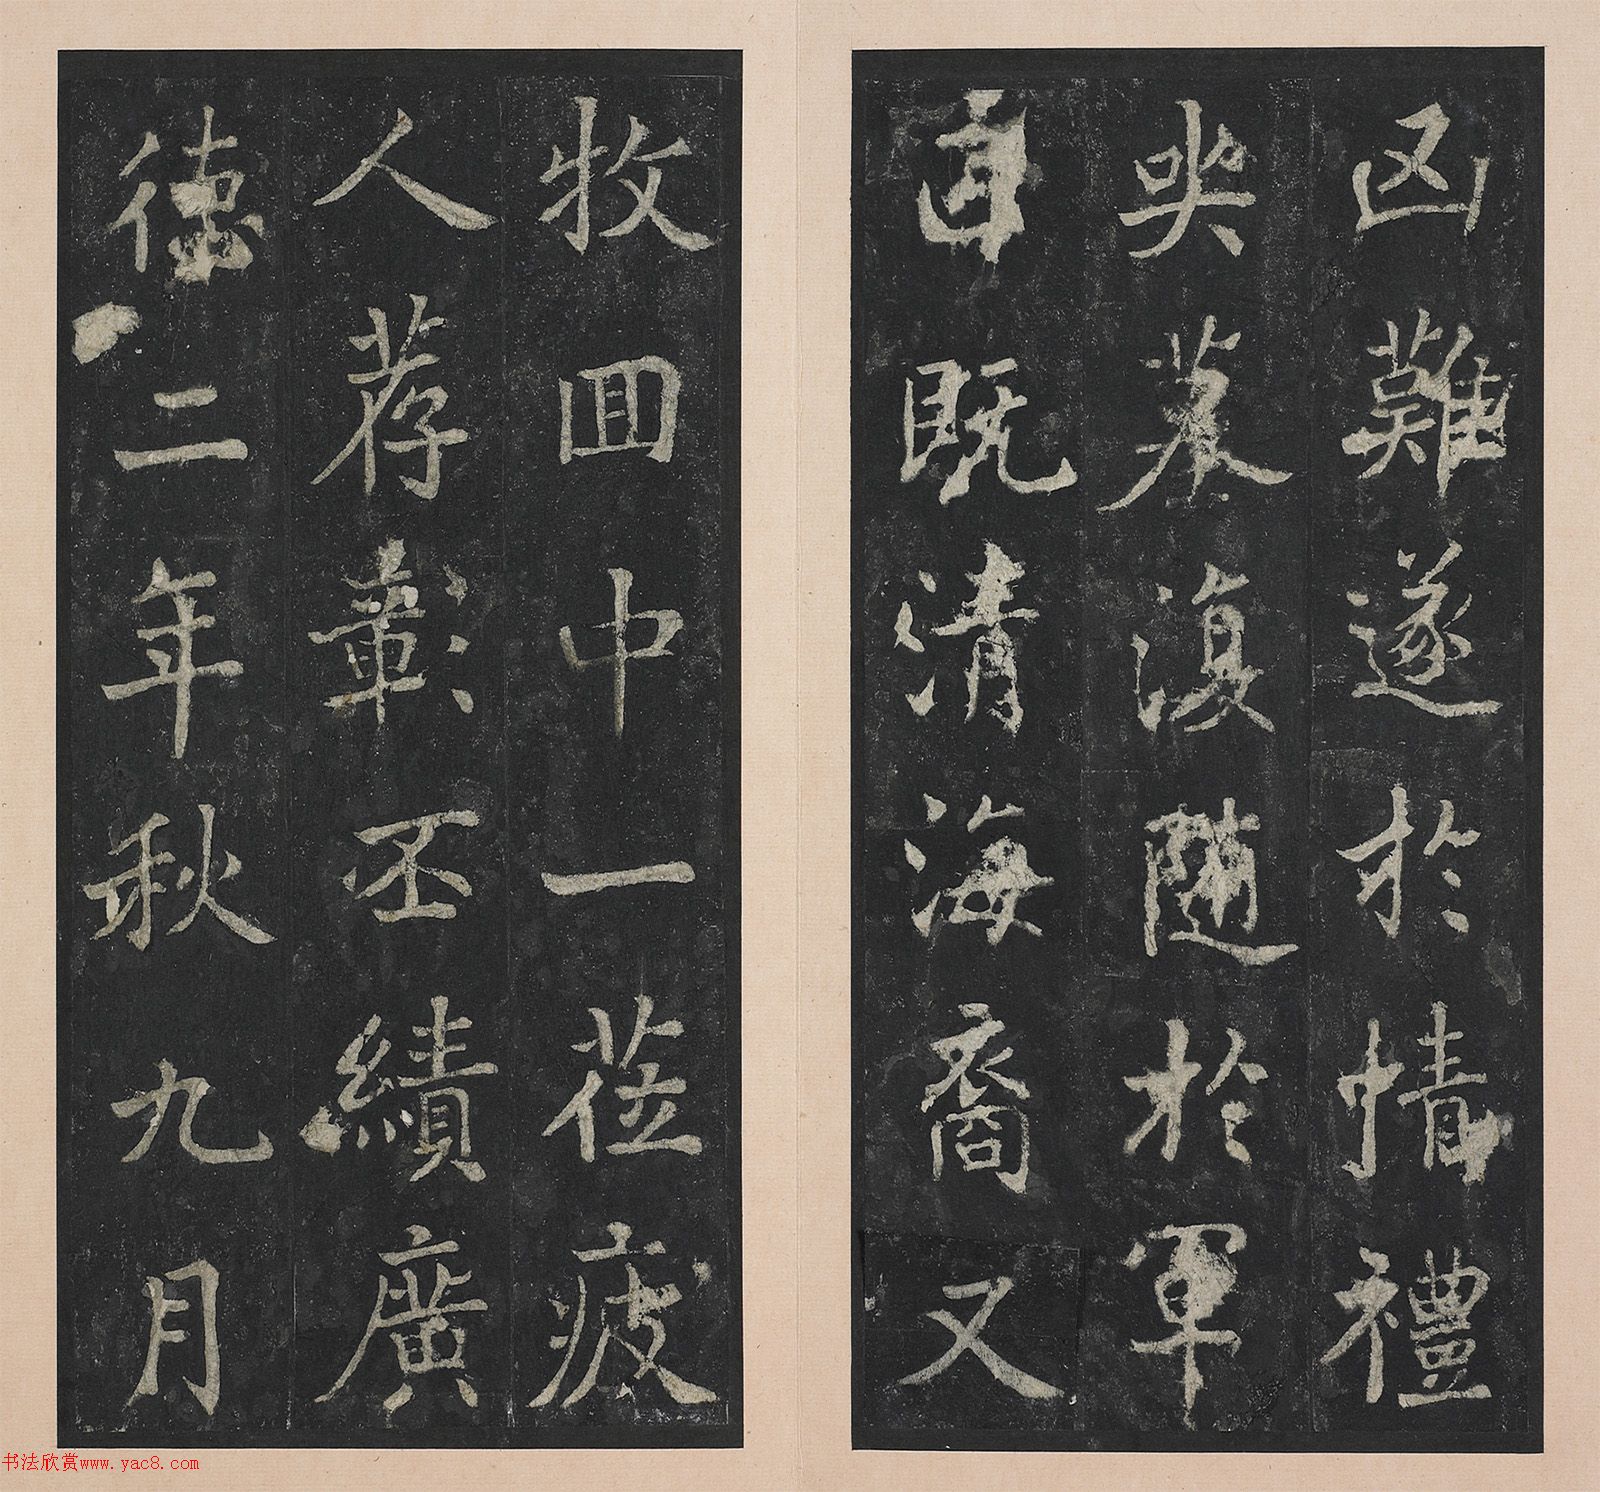 凶難遂於情禮
哭慕復隨於軍
既清海裔又
牧回中一莅疲
人荐彰丕績廣
德二年秋九月
书法欣赏www.yac8.com